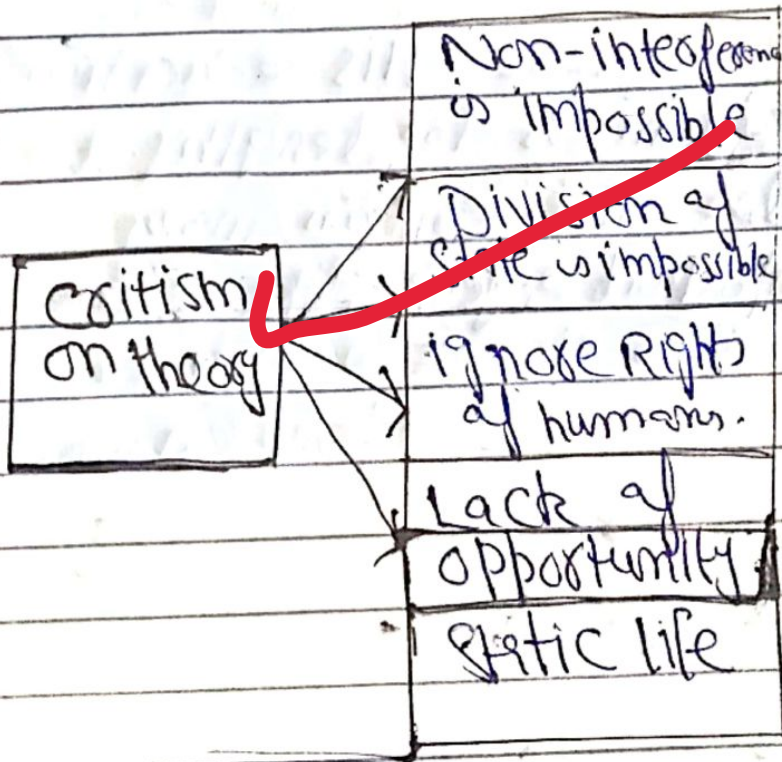 Critism
on theory
Non-interference
is impossible
Division of
state is impossible
ignore Rights
of humans.
Lack of
opportunity
Static life